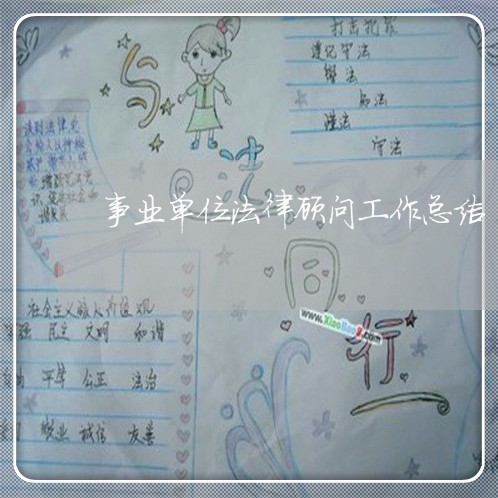 打击犯罪
遵纪守法
学法
知法
懂法
守法
与
法
同
行
事业单位法律顾问工作总结
www.XiaoBao8.com
社会主义核心价值观
富强 民主 文明 和谐
自由 平等 公正 法治
敬业 诚信 友善